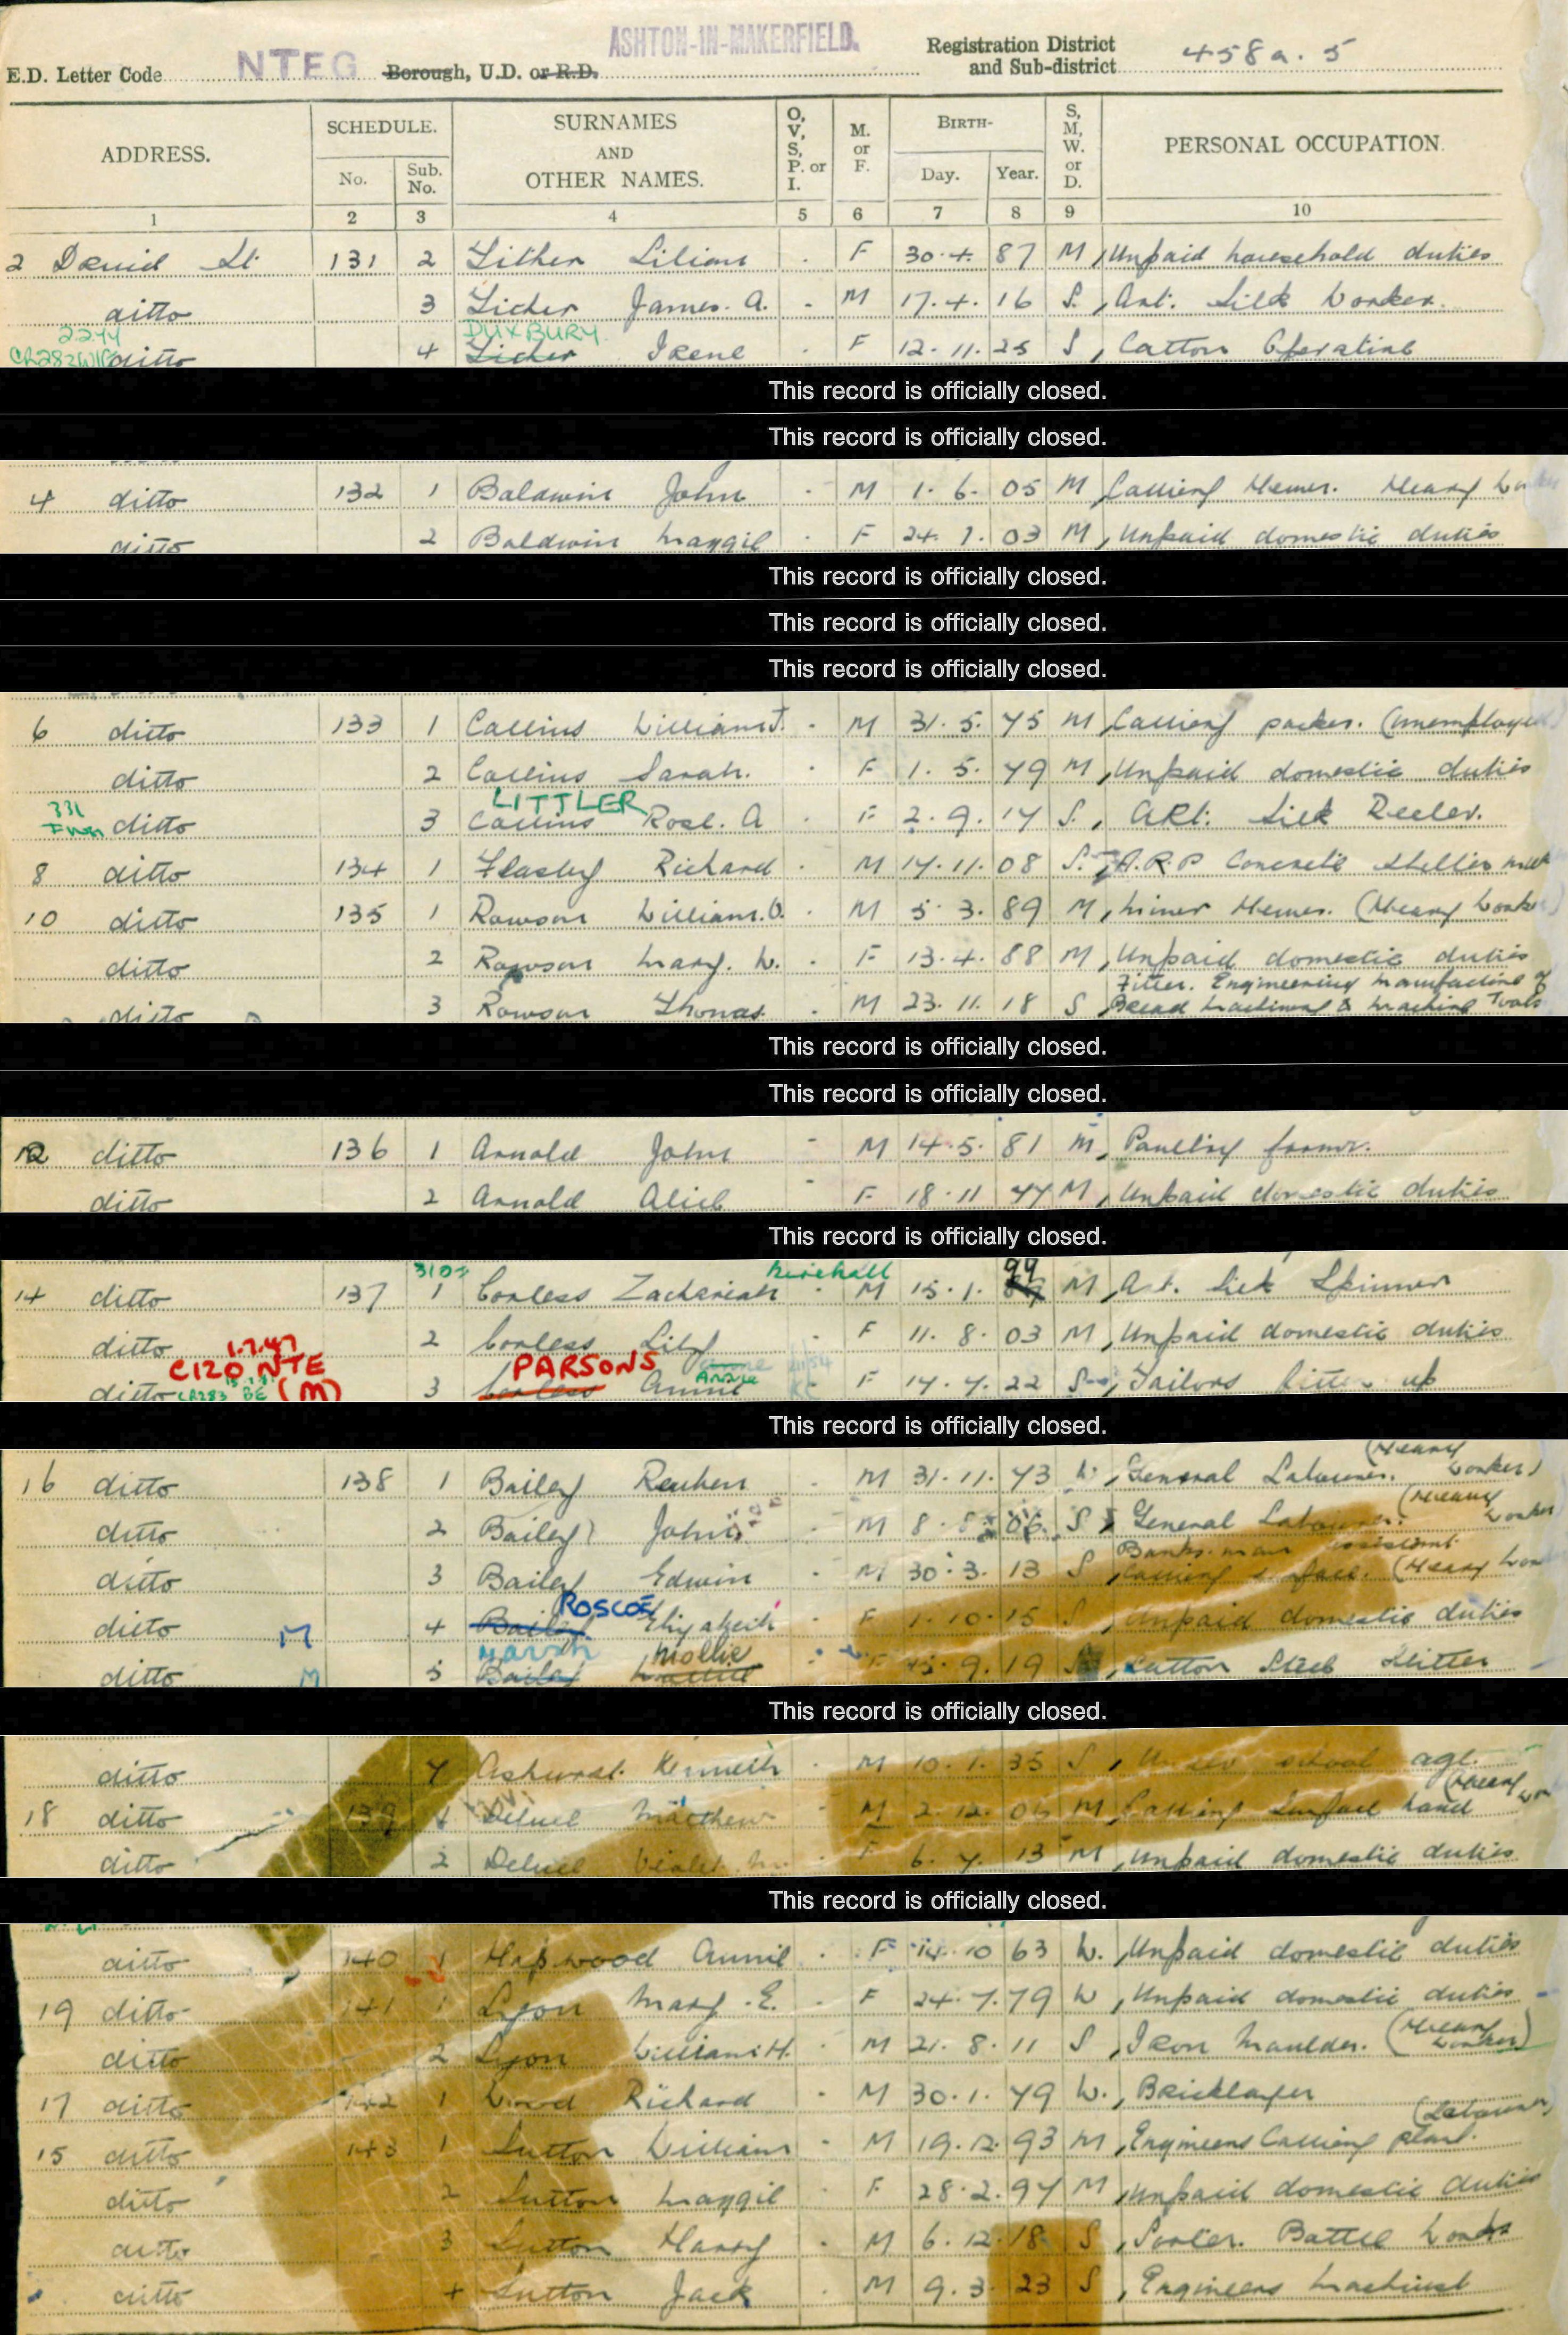 E.D. Letter Code NTEG Borough, U.D. or R.D. ASHTON-IN-MAKERFIELD. Registration District and Sub-district 458a. 5
ADDRESS. SCHEDULE. No. Sub. No. SURNAMES AND OTHER NAMES. O, V, S, P. or I. M. or F. BIRTH- Day. Year. S, M, W. or D. PERSONAL OCCUPATION.
1 2 3 4 5 6 7 8 9 10
2 Druid St. 131 2 Lilian F 30.4. 87 M Unpaid household duties
ditto 3 James. A. M 17.4. 16 S. Art. Silk Worker.
DUXBURY
ditto 4 Irene F 12.11.25 S Cotton Operative
This record is officially closed.
This record is officially closed.
4 ditto 132 1 Baldwin John M 1.6. 05 M Colliery Hewer. Heavy
ditto 2 Baldwin Maggie F 24. 03 M Unpaid domestic duties
This record is officially closed.
This record is officially closed.
This record is officially closed.
6 ditto 133 1 Collins William J. M 31.5. 75 M Colliery packer. (unemployed
ditto 2 Collins Sarah. F 1.5. 79 M Unpaid domestic duties
LITTLER
331 ditto 3 Collins Rose. A F 2.9. 14 S. Art. Silk Reeler.
8 ditto 134 1 Richard M 14.11. 08 S. A.R.P Concrete Shelter
10 ditto 135 1 Rowson William. O. M 5.3. 89 M Miner Hewer. (Heavy Worker)
ditto 2 Rowson Mary. W. F 13.4. 88 M Unpaid domestic duties
Fitter. Engineering Manufacture of
ditto 3 Rowson Thomas. M 23.11. 18 S Bread Machinery & Machine Tools
This record is officially closed.
This record is officially closed.
12 ditto 136 1 Arnold John M 14.5. 81 M Poultry farmer.
ditto 2 Arnold Alice F 18.11 77 M Unpaid domestic duties
This record is officially closed.
14 ditto 137 1 Corless Zachariah M 15.1. 99 M Art. Silk Spinner
ditto 2 Corless Lily F 11.8. 03 M Unpaid domestic duties
1.7.47 PARSONS
C120 NTE
ditto CR283 BE (M) 3 Corless Annie F 14.7. 22 S Tailors Fitter up
This record is officially closed.
(Heavy
16 ditto 138 1 Bailey Reuben M 31.11. 73 W General Labourer. Worker)
(Heavy
ditto 2 Bailey John M 8. 06 S General Labourer. Worker
Banksman assistant
ditto 3 Bailey Edwin M 30.3. 13 S Colliery (Heavy
ROSCOE
ditto M 4 Bailey Elizabeth F 1.10.15 S Unpaid domestic duties
Marsh Mollie
ditto M 5 Bailey F 9. 19 Cotton
This record is officially closed.
ditto 7 Ashurst. Kenneth M 10.1. 35 S Under school age.
(Heavy
18 ditto 139 1 Matthew M 2.12. M Colliery Surface hand
ditto 2 Violet. M. F 6.7. 13 M Unpaid domestic duties
This record is officially closed.
ditto 140 1 Hapwood Annie F 14.10 63 W. Unpaid domestic duties
19 ditto 141 1 Lyon Mary. E. F 24.7. 79 W Unpaid domestic duties
ditto 2 Lyon William H. M 21.8. 11 S Iron Moulder. (Heavy Worker)
17 ditto 142 1 Wood Richard M 30.1. 79 W. Bricklayer
(Labourer)
15 ditto 143 1 Sutton William M 19.12. 93 M Engineers Colliery plant.
ditto 2 Sutton Maggie F 28.2. 97 M Unpaid domestic duties
ditto 3 Sutton Harry M 6.12. 18 S Sorter. Bottle Works
ditto 4 Sutton Jack M 9.3. 23 S Engineers Machinist